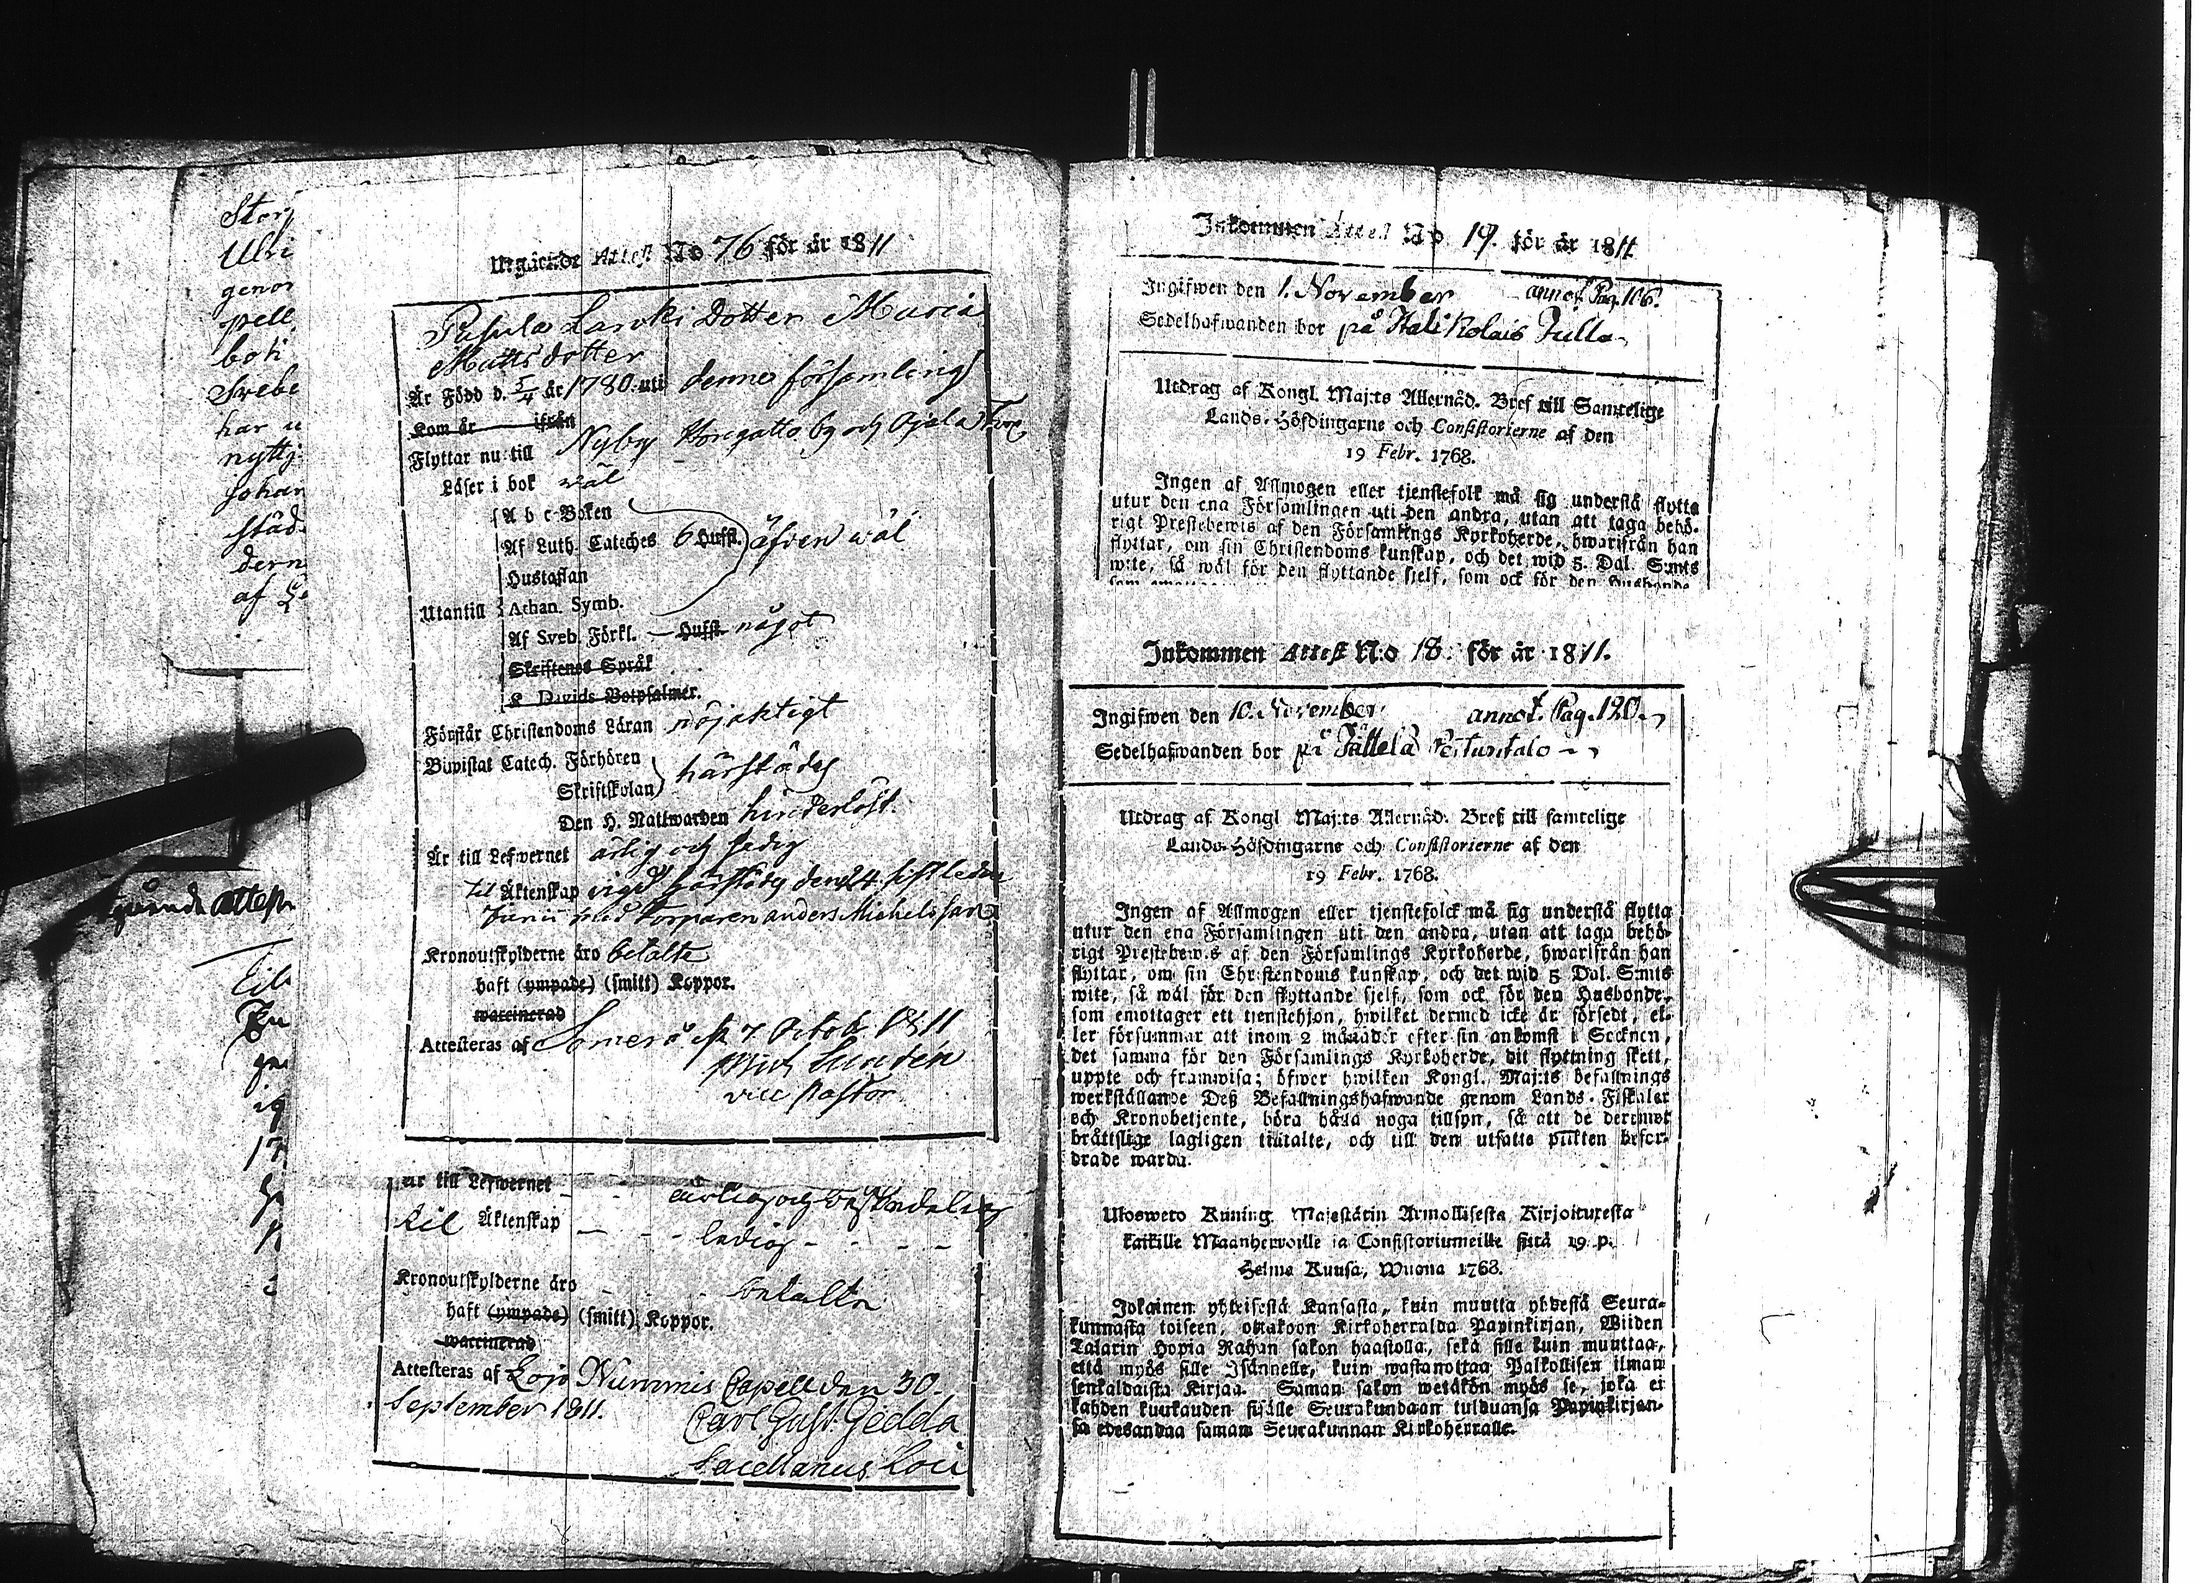 Stor
Ulri
genor
pell
boti
Svebe
har u
nyttj
Johan
städ
dern
af
gående Attest
Utgående Attest No 76 för år 1811
Pasula Larvki Dotter Maria
Mattsdotter
Är Född d. 5/4 år 1780 uti denne församling
Kom år ifrån
Flyttar nu till Nyby by och Ojala
Läser i bok wäl
A b c-Boken
Af Luth. Cateches 6 Hufst. äfven wäl
Hustaflan
Utantill Athan. Symb.
Af Sveb. Förkl. Hufst. något
Skriftenes Språk
Davids Botpsalmer.
Förstår Christendoms Läran nöjaktigt
Biwistat Catech. Förhören
Skriftskolan härstädes
Den H. Nattwarden hinderlöst.
Är till Lefwernet ärlig och sedig
til Äktenskap vigd härstädes den 24 sistledne
Junii med Torparen Anders Michelsson
Kronoutskylderne äro betalte
haft (ympade) (smitt) Koppor.
waccinerad
Attesteras af Somero d. 7 Octob. 1811
Sundén
vice Pastor
Är till Lefwernet ärlig och beskedelig
til Äktenskap ledig
Kronoutskylderne äro betalta
haft (ympade) (smitt) Koppor.
waccinerad
Attesteras af Lojo Nummis Capell den 30
September 1811. Carl Gust. Gedda
Sacellanus Loci
Inkommen Attest No 19. för år 1811
Ingifwen den 1. November annot. Pag. 106.
Sedelhafwanden bor på Hali Kolais Julla
Utdrag af Kongl. Maj:ts Allernåd. Bref till Samtelige
Lands-Höfdingarne och Consistorierne af den
19 Febr. 1768.
Ingen af Allmogen eller tjenstefolk må sig understå flytta
utur den ena Församlingen uti den andra, utan att taga behö-
rigt Prestebewis af den Församlings Kyrkoherde, hwarifrån han
flyttar, om sin Christendoms kunskap, och det wid 5. Dal. S:mts
wite, så wäl för den flyttande sjelf, som ock för den Husbonde,
Inkommen Attest N:o 18. för år 1811.
Ingifwen den 10. November annot. Pag. 120.
Sedelhafwanden bor på Jättelä Pertuntalo
Utdrag af Kongl Maj:ts Allernåd. Bref till samtelige
Lands-Höfdingarne och Consistorierne af den
19 Febr. 1768.
Ingen af Allmogen eller tjenstefolck må sig understå flytta
utur den ena Församlingen uti den andra, utan att taga behö-
rigt Prestebewis af den Församlings Kyrkoherde, hwarifrån han
flyttar, om sin Christendoms kunskap, och det wid 5 Dal. S:mts
wite, så wäl för den flyttande sjelf, som ock för den Husbonde,
som emottager ett tjenstehjon, hwilket dermed icke är försedt, el-
ler försummar att inom 2 månader efter sin ankomst i Socknen,
det samma för den Församlings Kyrkoherde, dit flyttning skett,
uppte och framwisa; öfwer hwilken Kongl. Maj:ts befallnings
werkställande Deß Befallningshafwande genom Lands-Fiskaler
och Kronobetjente, böra hålla noga tillsyn, så att de deremot
bråttslige lagligen tiltalte, och till dem utsatte plikten befor-
drade warda.
Ulosweto Kuning. Majestätin Armollisesta Kirjoituxesta
kaikille Maanherroille ja Consistoriumeille siitä 19 p.
Helma Kuusa, Wuona 1768.
Jokainen yhteisestä Kansasta, kuin muutta yhdestä Seura-
kunnasta toiseen, ottakoon Kirkoherralda Papinkirjan, Wiiden
Talarin Hopia Rahan sakon haastolla, sekä sille kuin muuttaa,
että myös sille Isännelle, kuin wastanottaa Palkollisen ilman
senkaldaista Kirjaa. Saman sakon wetäkön myös se, joka ei
kahden kuukauden sisälle Seurakundaan tulduansa Papinkirjan-
sa edesandaa saman Seurakunnan Kirkoherralle.